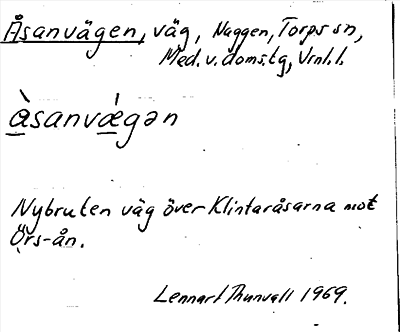 Åsanvägen, väg, Naggen, Torps sn,
Med. v. doms.tg, Vrnl. l.
a̠̋sanvǽgən
Nybruten väg över Klintaråsarna mot
Örs-ån.
Lennart Thunvall 1969.